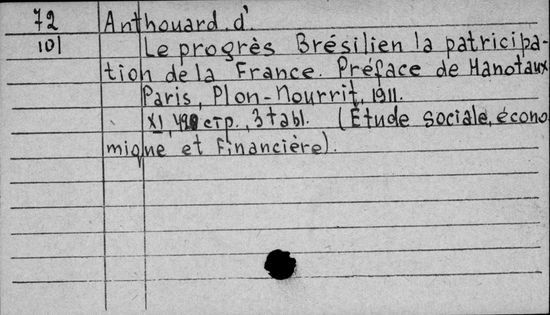 72 Anthouard. d'.
101 Le progrès Brésilien la patricipa-
tion de la France. Préface de Hanotaux
Paris, Plon-Nourrit, 1911.
XI, стр., 3 tabl. (Étude sociale, écono
mique et financière).